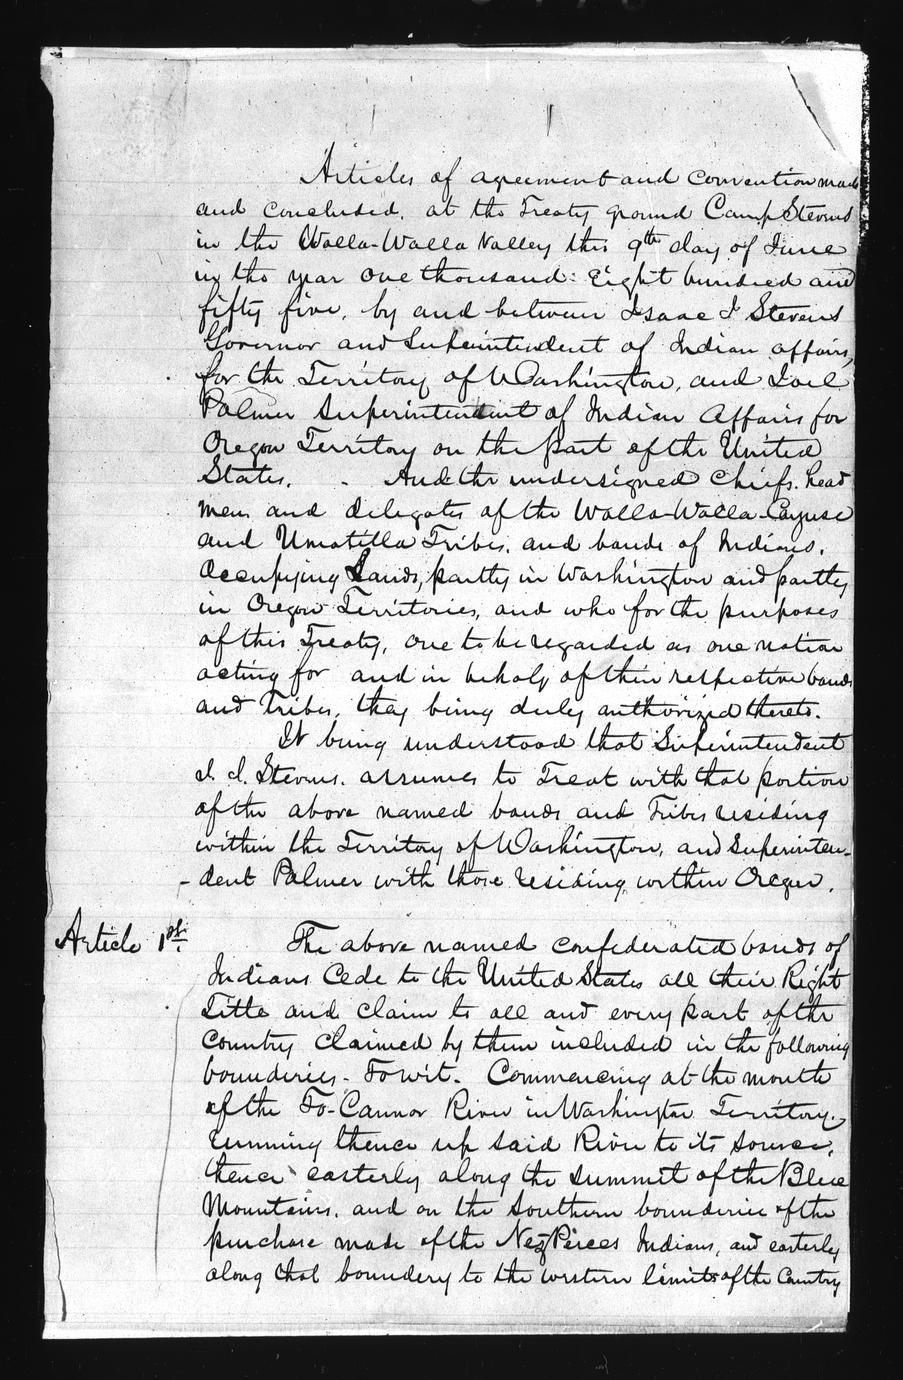 Articles of agreement and convention made
and concluded, at the Treaty ground Camp Stevens
in the Walla-Walla Valley this 9th day of June
in the year one thousand: Eight hundred and
fifty five, by and between Isaac I Stevens
Governor and Superintendent of Indian affairs,
for the Territory of Washington, and Joel
Palmer Superintendent of Indian Affairs for
Oregon Territory on the part of the United
States. - And the undersigned Chiefs. head
men and delegates of the Walla-Walla-Cayuse
and Umatilla Tribes. and bands of Indians.
Occupying Lands, partly in Washington and partly
in Oregon Territories, and who for the purposes
of this Treaty, are to be regarded as one nation
acting for and in behalf of their respective bands
and Tribes, they being duly authorized thereto.
It being understood that Superintendent
I. I. Stevens. assumes to Treat with that portion
of the above named bands and Tribes residing
within the Territory of Washington, and Superinten-
-dent Palmer with those residing within Oregon.
Article 1st.
The above named confederated bands of
Indians Cede to the United States all their Right
Title and claim to all and every part of the
Country claimed by them included in the following
bounderies - To wit. Commencing at the mouth
of the To-Cannon River in Washington Territory.
running thence up said River to its source,
thence easterly along the summit of the Blue
Mountains. and on the Southern bounderies of the
purchase made of the Nez Perces Indians, and easterly
along that boundery to the western limits of the Country